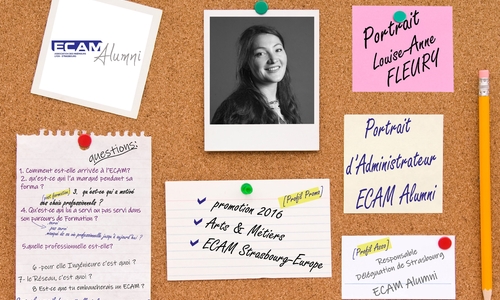 ECAM Alumni
Portrait
Louise-Anne
FLEURY
questions:
1. Comment est-elle arrivée à l'ECAM?
2. qu'est-ce qui l'a marqué pendant sa
forma ?
3. qu'est-ce qui a motivé
des choix professionnels ?
4. Qu'est-ce qui lui a servi ou pas servi dans
son parcours de Formation ?
5.quelle professionnelle est-elle?
6 - pour elle Ingénieure c'est quoi ?
7- le Réseau, c'est quoi ?
8 - Est-ce que tu embaucherais un ECAM ?
[Profil Promo]
promotion 2016
Arts & Métiers
ECAM Strasbourg-Europe
Portrait
d'Administrateur
ECAM Alumni
[Profil Asso]
Responsable
Délégation de Strasbourg
ECAM Alumni